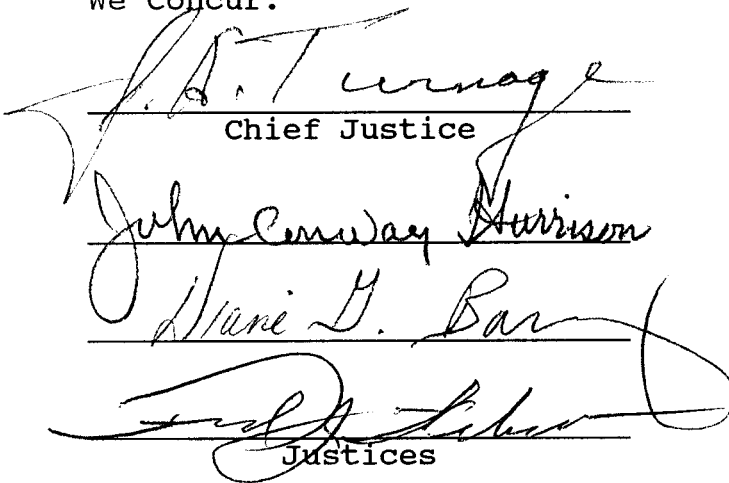 We Concur:
J. A. Turnage
Chief Justice
John Conway Harrison
Diane G. Barz
Justices